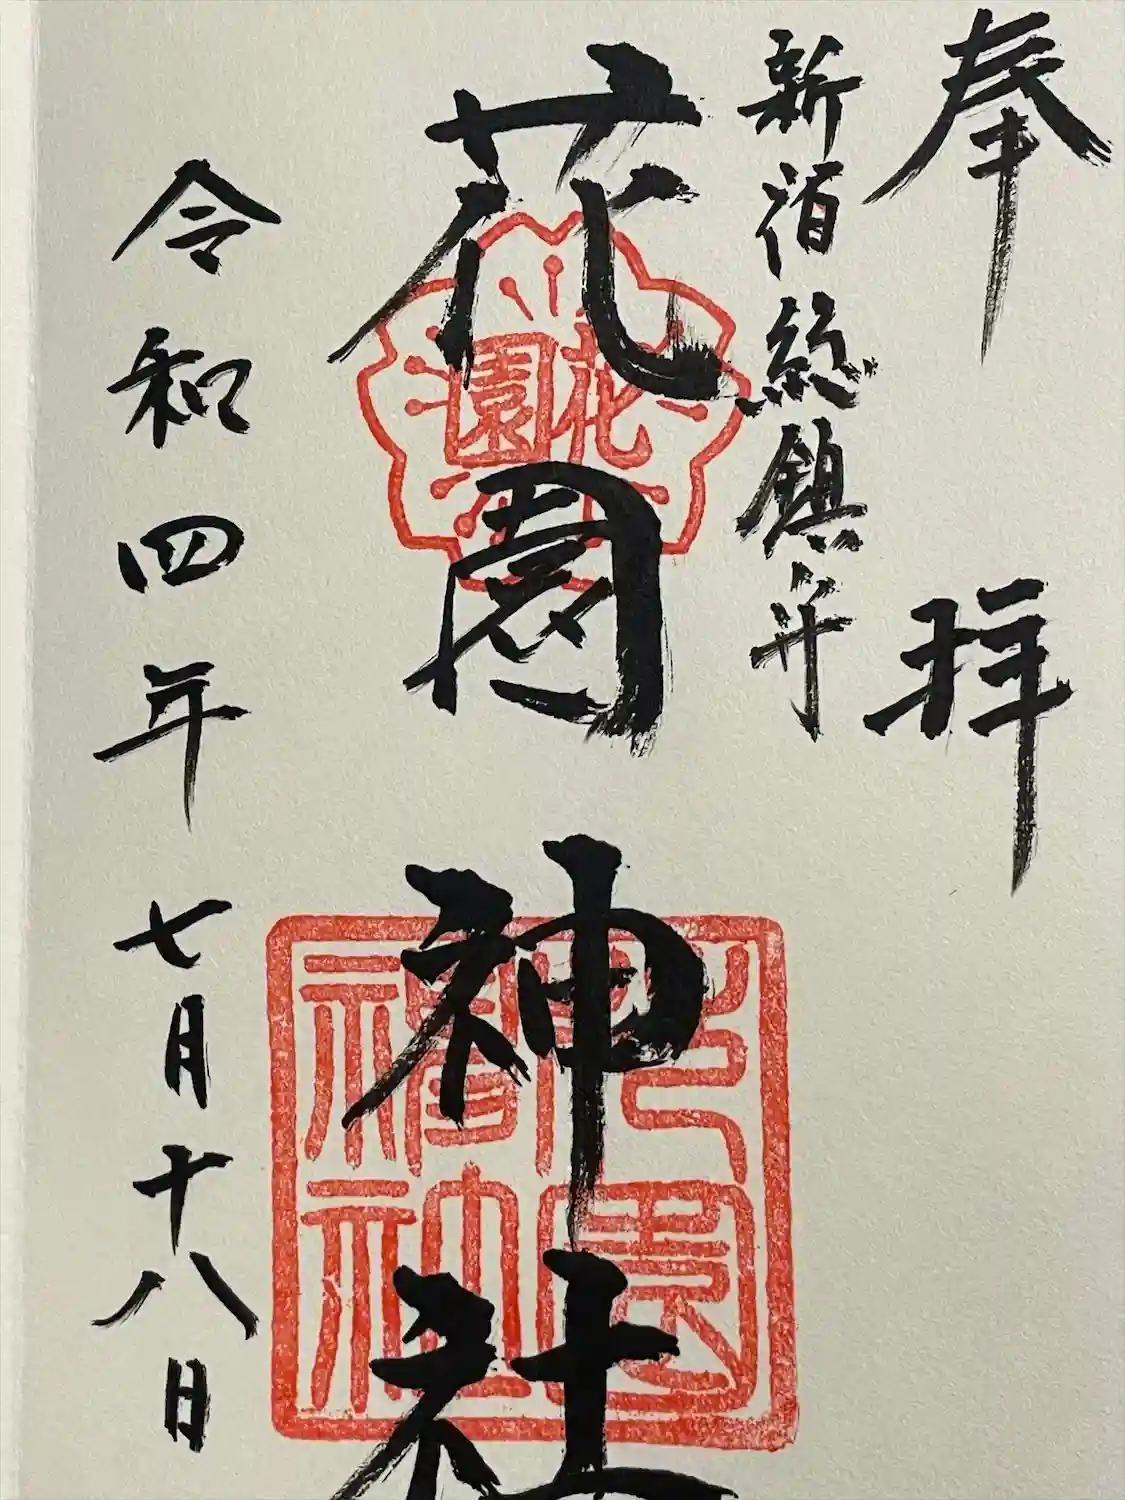 奉拝
新宿総鎮守
花園神社
花園
花園神社
令和四年七月十八日